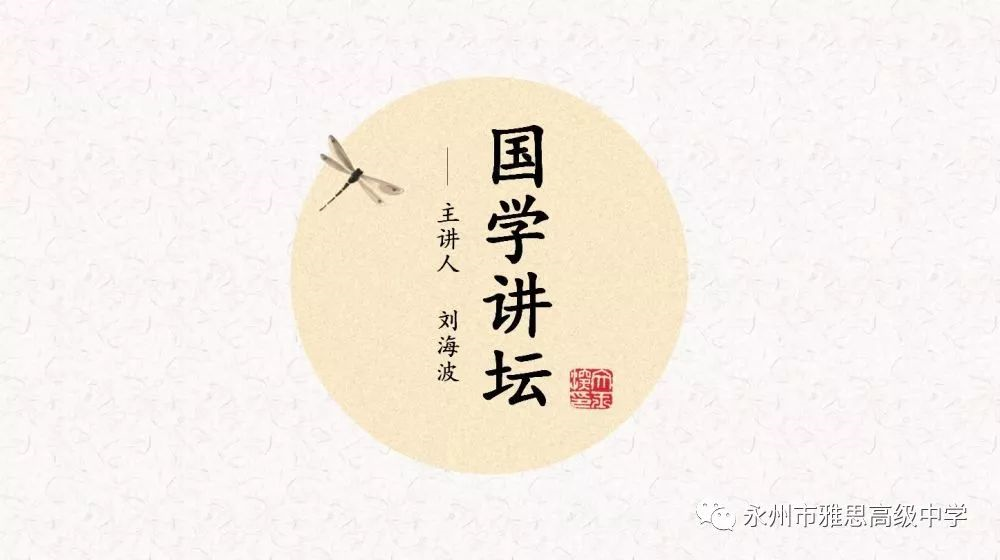 国学讲坛
——主讲人 刘海波
永州市雅思高级中学